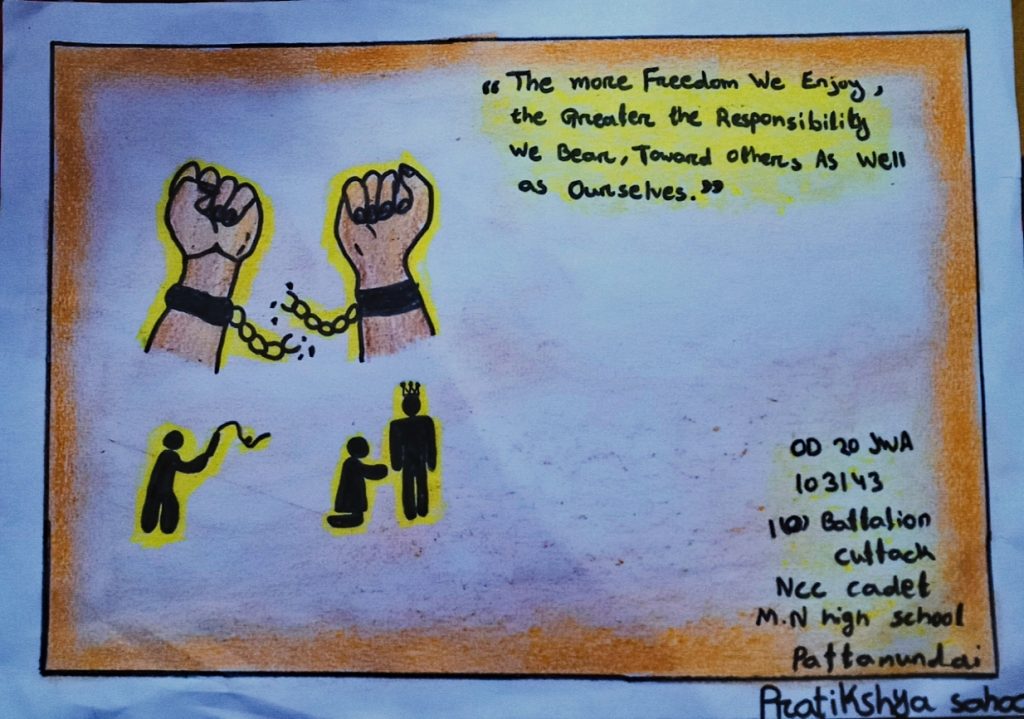 “The more Freedom We Enjoy,
the Greater the Responsibility
We Bear, Toward others, As Well
as Ourselves.”
OD 20 JWA
103143
Battalion
cuttack
Ncc cadet
M.N high school
Pattamundai
Pratikshya sahoo